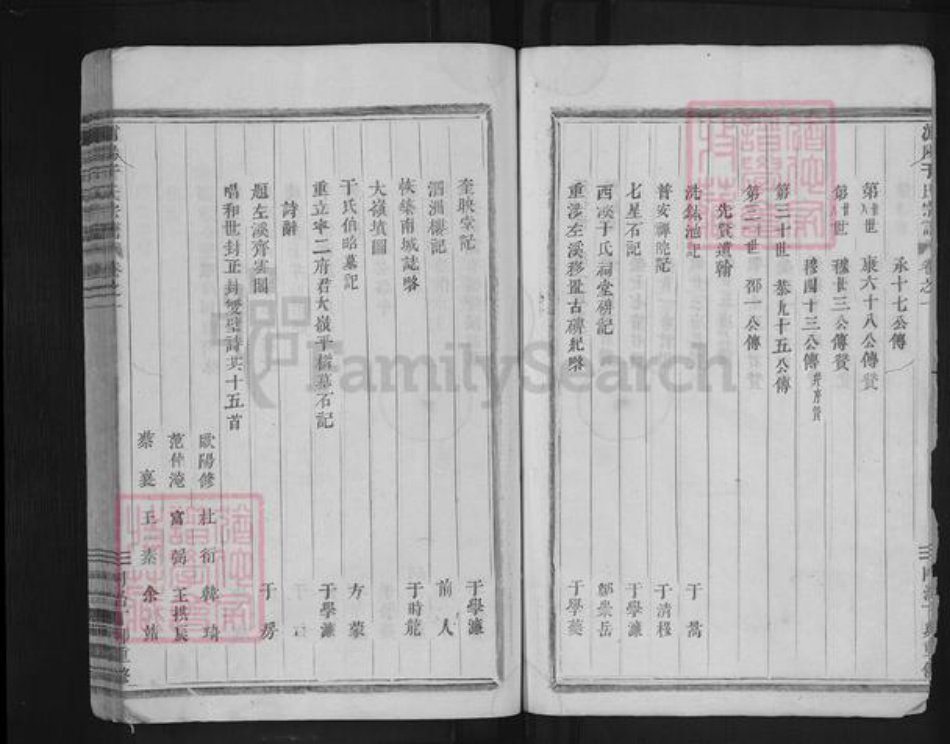 承十七公傳
第廿八世 康六十八公傳贊
第廿八世 穆廿三公傳贊
穆四十三公傳并序贊
第三十世 恭九十五公傳
第三十一世 邵一公傳
先賢遺翰
洗鈦池記 于嵩
普安禪院記 于清穆
七星石記 于學濂
西溪于氏祠堂碑記 岳
重涉左溪移置古碑紀略 于學夔
奎映堂記 于學濂
泗洲樓記 前人
恢築南城誌略 于時龍
大嶺墳圖
于氏伯昭墓記 方蒙
重立寧二府君大嶺平樁墓石記 于學濂
詩辭
題左溪齊雲閣 于房
唱和世封正封雙璧詩共十五首
歐陽修 杜衍 韓琦
范仲淹 富弼 王拱辰
蔡襄 王素 余靖
FamilySearch